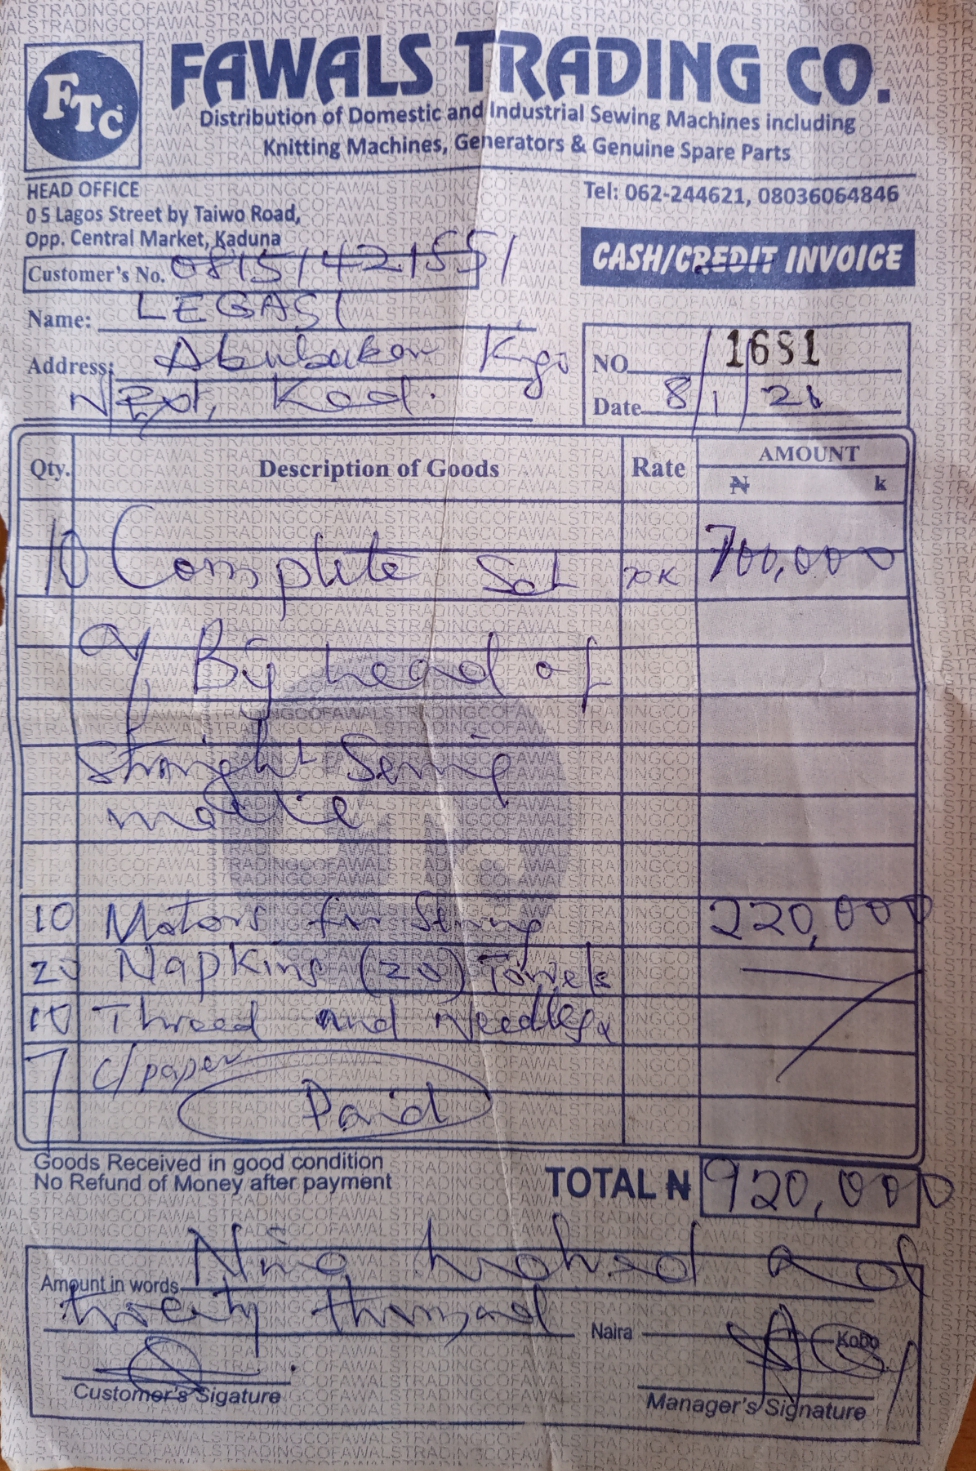 FTC
FAWALS TRADING CO.
Distribution of Domestic and Industrial Sewing Machines including
Knitting Machines, Generators & Genuine Spare Parts
HEAD OFFICE
0 5 Lagos Street by Taiwo Road,
Opp. Central Market, Kaduna
Tel: 062-244621, 08036064846
CASH/CREDIT INVOICE
Customer's No. 08151421551
Name: LEGASI
Address: Abubakar
Kad.
NO. 1681
Date 8/1/21
Qty. Description of Goods Rate AMOUNT
₦ k
10 Complete Set 70K 700,000
of Big head of
Straight Sewing
10 Motors for 220,000
20 Napkins (20) Towels
10 Thread and Needles
c/paper
Paid
Goods Received in good condition
No Refund of Money after payment
TOTAL ₦ 920,000
Amount in words Nine hundred and
twenty thousand Naira Kobo
Customer's Sigature
Manager's Signature